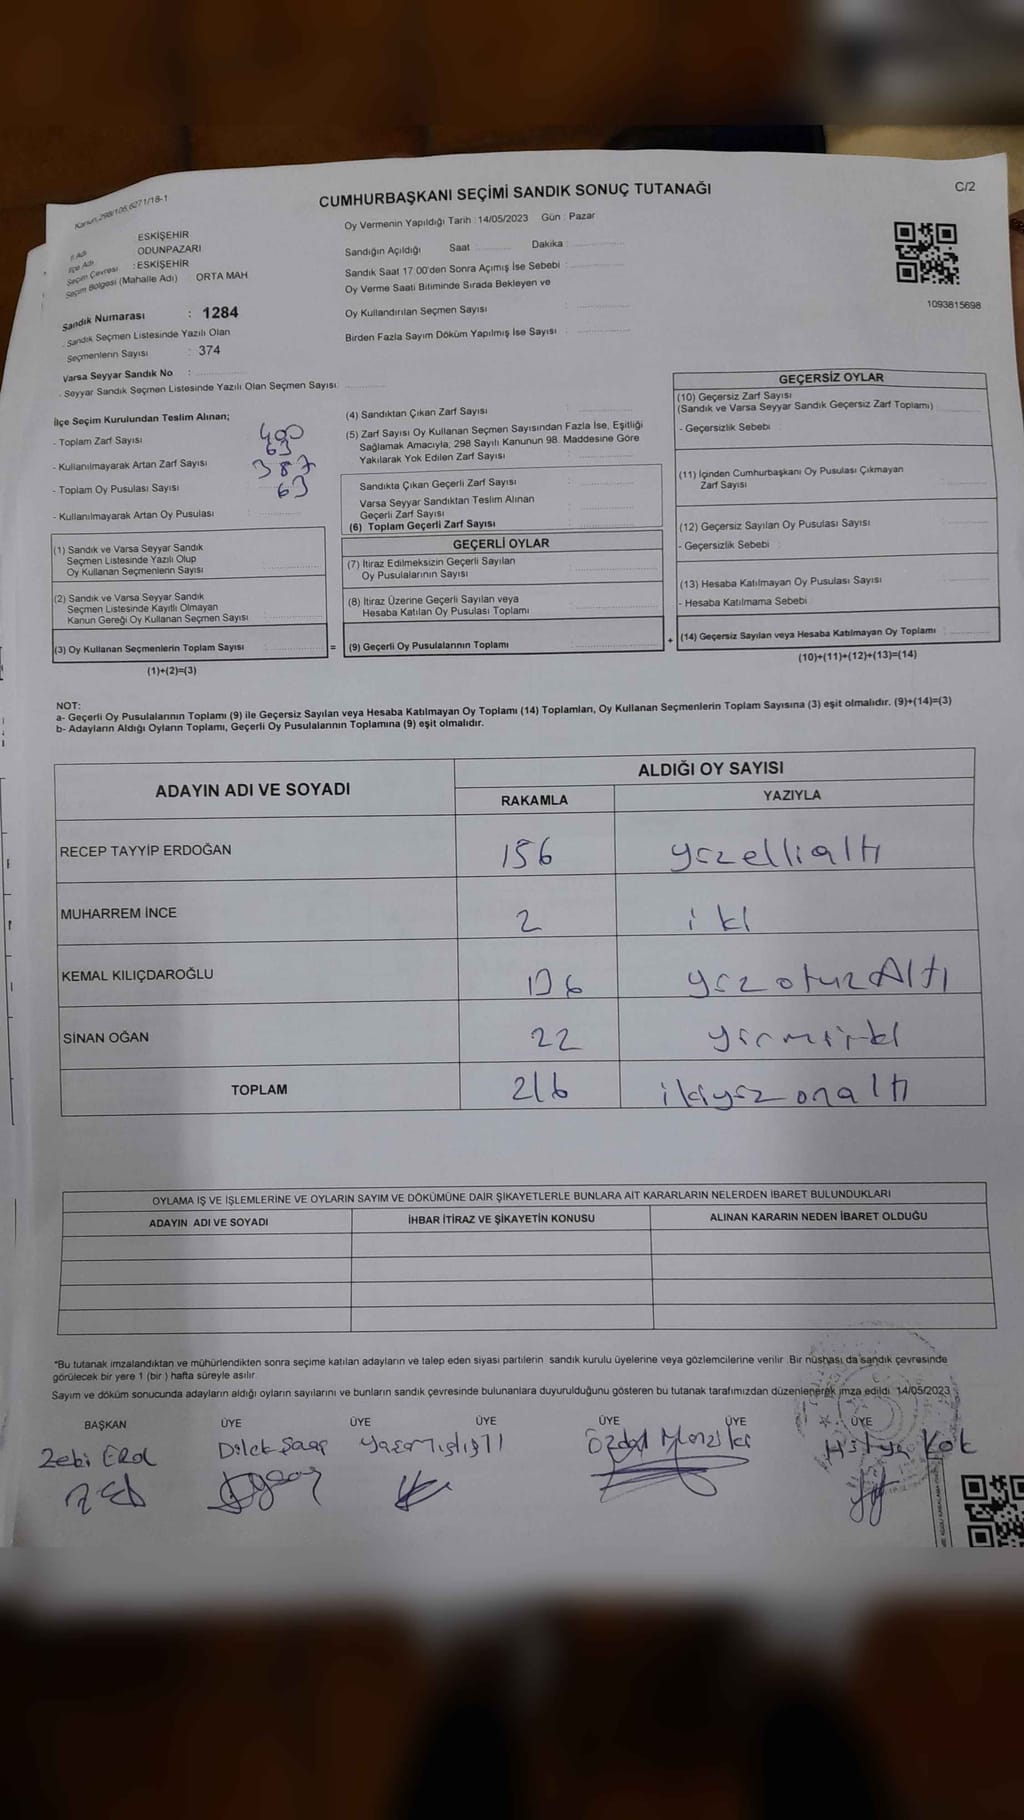 Kanun;298/106;6271/18-1
CUMHURBAŞKANI SEÇİMİ SANDIK SONUÇ TUTANAĞI
C/2
Oy Vermenin Yapıldığı Tarih : 14/05/2023 Gün : Pazar
İl Adı : ESKİŞEHİR
İlçe Adı : ODUNPAZARI
Seçim Çevresi : ESKİŞEHİR
Seçim Bölgesi (Mahalle Adı) : ORTA MAH
Sandığın Açıldığı Saat : Dakika :
Sandık Saat 17.00'den Sonra Açımış İse Sebebi :
Oy Verme Saati Bitiminde Sırada Bekleyen ve
Oy Kullandırılan Seçmen Sayısı :
Birden Fazla Sayım Döküm Yapılmış İse Sayısı :
1093815698
Sandık Numarası : 1284
. Sandık Seçmen Listesinde Yazılı Olan
Seçmenlerin Sayısı : 374
Varsa Seyyar Sandık No :
. Seyyar Sandık Seçmen Listesinde Yazılı Olan Seçmen Sayısı :
İlçe Seçim Kurulundan Teslim Alınan;
- Toplam Zarf Sayısı 400
- Kullanılmayarak Artan Zarf Sayısı 63
- Toplam Oy Pusulası Sayısı 387
- Kullanılmayarak Artan Oy Pusulası : 63
(1) Sandık ve Varsa Seyyar Sandık
Seçmen Listesinde Yazılı Olup
Oy Kullanan Seçmenlerin Sayısı
(2) Sandık ve Varsa Seyyar Sandık
Seçmen Listesinde Kayıtlı Olmayan
Kanun Gereği Oy Kullanan Seçmen Sayısı
(3) Oy Kullanan Seçmenlerin Toplam Sayısı
(1)+(2)=(3)
=
(4) Sandıktan Çıkan Zarf Sayısı :
(5) Zarf Sayısı Oy Kullanan Seçmen Sayısından Fazla İse, Eşitliği
Sağlamak Amacıyla, 298 Sayılı Kanunun 98. Maddesine Göre
Yakılarak Yok Edilen Zarf Sayısı :
Sandıkta Çıkan Geçerli Zarf Sayısı :
Varsa Seyyar Sandıktan Teslim Alınan
Geçerli Zarf Sayısı :
(6) Toplam Geçerli Zarf Sayısı :
GEÇERLİ OYLAR
(7) İtiraz Edilmeksizin Geçerli Sayılan
Oy Pusulalarının Sayısı
(8) İtiraz Üzerine Geçerli Sayılan veya
Hesaba Katılan Oy Pusulası Toplamı
(9) Geçerli Oy Pusulalarının Toplamı
+
GEÇERSİZ OYLAR
(10) Geçersiz Zarf Sayısı
(Sandık ve Varsa Seyyar Sandık Geçersiz Zarf Toplamı) :
- Geçersizlik Sebebi :
(11) İçinden Cumhurbaşkanı Oy Pusulası Çıkmayan
Zarf Sayısı
(12) Geçersiz Sayılan Oy Pusulası Sayısı
- Geçersizlik Sebebi :
(13) Hesaba Katılmayan Oy Pusulası Sayısı
- Hesaba Katılmama Sebebi :
(14) Geçersiz Sayılan veya Hesaba Katılmayan Oy Toplamı
(10)+(11)+(12)+(13)=(14)
NOT:
a- Geçerli Oy Pusulalarının Toplamı (9) ile Geçersiz Sayılan veya Hesaba Katılmayan Oy Toplamı (14) Toplamları, Oy Kullanan Seçmenlerin Toplam Sayısına (3) eşit olmalıdır. (9)+(14)=(3)
b- Adayların Aldığı Oyların Toplamı, Geçerli Oy Pusulalarının Toplamına (9) eşit olmalıdır.
ADAYIN ADI VE SOYADI ALDIĞI OY SAYISI
RAKAMLA YAZIYLA
RECEP TAYYİP ERDOĞAN 156 yüzellialtı
MUHARREM İNCE 2 iki
KEMAL KILIÇDAROĞLU 136 yüzotuzAltı
SİNAN OĞAN 22 yirmiiki
TOPLAM 216 ikiyüzonaltı
OYLAMA İŞ VE İŞLEMLERİNE VE OYLARIN SAYIM VE DÖKÜMÜNE DAİR ŞİKAYETLERLE BUNLARA AİT KARARLARIN NELERDEN İBARET BULUNDUKLARI
ADAYIN ADI VE SOYADI İHBAR İTİRAZ VE ŞİKAYETİN KONUSU ALINAN KARARIN NEDEN İBARET OLDUĞU
*Bu tutanak imzalandıktan ve mühürlendikten sonra seçime katılan adayların ve talep eden siyasi partilerin sandık kurulu üyelerine veya gözlemcilerine verilir. Bir nüshası da sandık çevresinde
görülecek bir yere 1 (bir ) hafta süreyle asılır.
Sayım ve döküm sonucunda adayların aldığı oyların sayılarını ve bunların sandık çevresinde bulunanlara duyurulduğunu gösteren bu tutanak tarafımızdan düzenlenerek imza edildi. 14/05/2023
BAŞKAN ÜYE ÜYE ÜYE ÜYE ÜYE ÜYE
Zebi ERol Dilek Şaar Hülya Kok